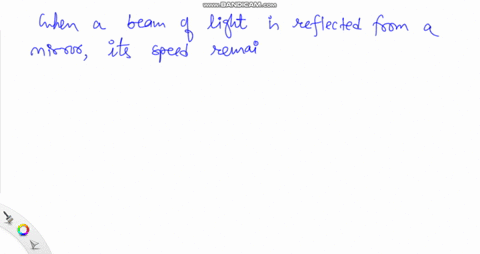 www.BANDICAM.com
When a beam of light is reflected from a
mirror, its speed remai